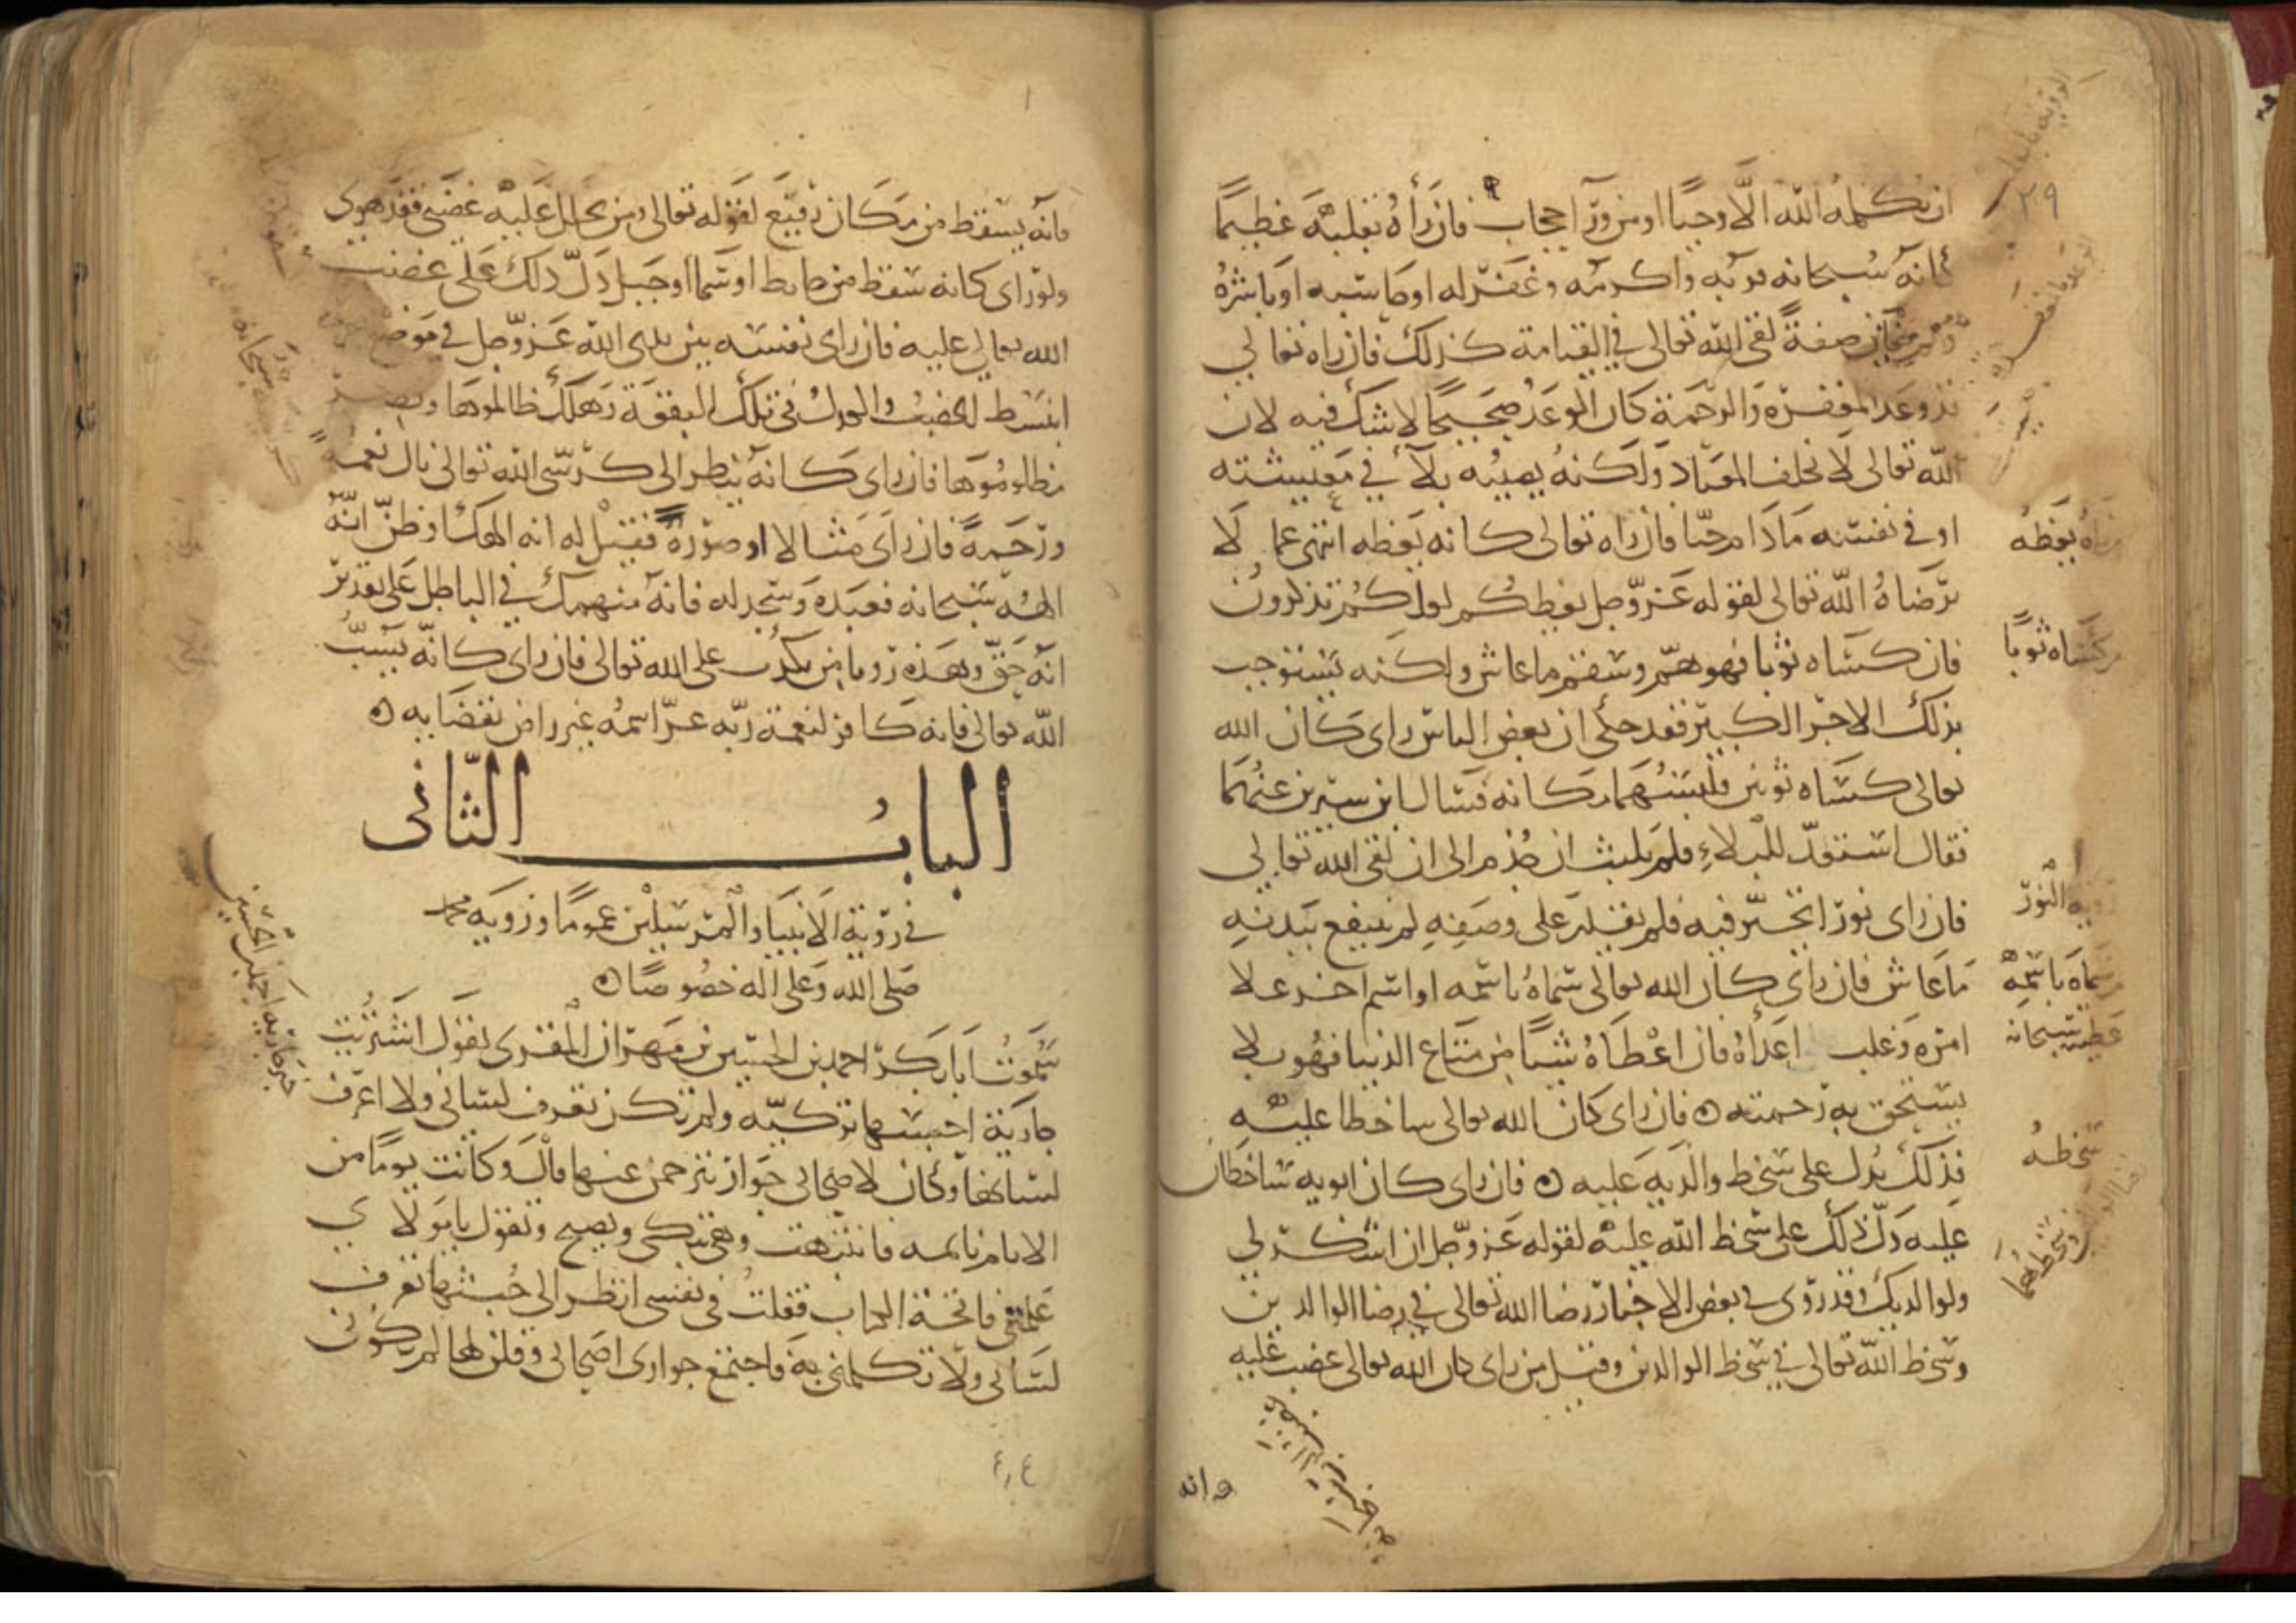 ٢٩
ان يكلمه الله الا وحيا او من ورآ حجاب فان رأه بقلبه عظيما
كانه سبحانه قربه واكرمه وغفر له او حاسبه او بشره
صفة لقى الله تعالى في القيامة كذلك فان راه تعالى
قد وعد المغفرة والرحمة كان الوعد صحيحا لا شك فيه لان
الله تعالى لا يخلف الميعاد ولكنه يصيبه بلآ في معيشته
او في نفسه ما دام حيا فان راه تعالى كانه يعظه انتهى عما لا
يرضاه الله تعالى لقوله عز وجل يعظكم لعلكم تذكرون
فان كساه ثوبا فهو هم وسقم ما عاش ولكنه يستوجب
بذلك الاجر الكبير فقد حكى ان بعض الناس راى كان الله
تعالى كساه ثوبين فلبسهما مكانه فسال ابن سيرين عنهما
فقال استعد للبلاء فلم يلبث ان جذم الى ان لقى الله تعالى
فان راى نورا تحير فيه فلم يقدر على وصفه لم ينتفع بيديه
ما عاش فان راى كان الله تعالى سماه باسمه او اسم اخر علا
امره وغلب اعدآه فان اعطاه شيا من متاع الدنيا فهو بلا
يستحق به رحمته فان راى كان الله تعالى ساخطا عليه
فذلك يدل على سخط والديه عليه فان راى كان ابويه ساخطان
عليه دل ذلك على سخط الله عليه لقوله عز وجل ان اشكر لي
ولوالديك وقد روى في بعض الاخبار رضا الله تعالى في رضا الوالدين
وسخط الله تعالى في سخط الوالدين وقيل من راى كان الله تعالى غضب عليه
وانه
يعظه
كساه ثوبا
النور
سماه باسمه
سبحانه
سخطه
فانه يسقط من مكان رفيع لقوله تعالى ومن يحلل عليه غضبى فقد هوى
ولو راى كانه سقط من حايط او سما او جبل دل ذلك على غضب
الله تعالى عليه فان راى نفسه بين يدى الله عز وجل في موضع
انبسط الغضب والعدل في تلك البقعة وهلك ظالموها ونصر
مظلوموها فان راى كانه ينظر الى كرسى الله تعالى نال نعمة
ورحمة فان راى مثالا او صورة فقيل له انه الهك او ظن انه
الهه سبحانه فعبده وسجد له فانه منهمك في الباطل على تقدير
انه حق وهذه رويا من يكذب على الله تعالى فان راى كانه يسب
الله تعالى فانه كافر لنعمة ربه عز اسمه غير راض بقضايه
الباب الثانى
في روية الانبيا والمرسلين عموما وروية محمد
صلى الله وعلى اله خصوصا
سمعت ابا بكر احمد بن الحسين بن مهران المقرى يقول اشتريت
جارية احسبها تركية ولم تكن تعرف لسانى ولا اعرف
لسانها وكان لاصحابى جوار يترجمن عنها قال وكانت يوما من
الايام نايمه فانتبهت وهى تبكى وتصيح وتقول يا مولاى
علمنى فاتحة الكتاب فقلت في نفسى انظر الى خبثها تعرف
لسانى ولا تكلمنى به فاجتمع جوارى اصحابى وقلن لها لم تكونى